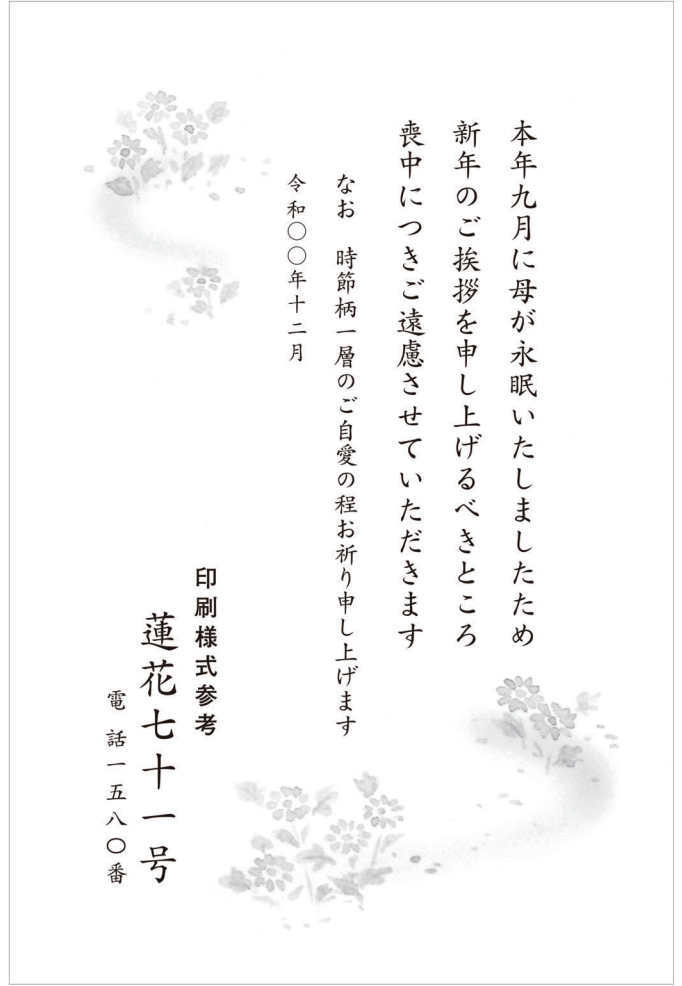 本年九月に母が永眠いたしましたため
新年のご挨拶を申し上げるべきところ
喪中につきご遠慮させていただきます
なお　時節柄一層のご自愛の程お祈り申し上げます
令和〇〇年十二月
印刷様式参考
蓮花七十一号
電話一五八〇番